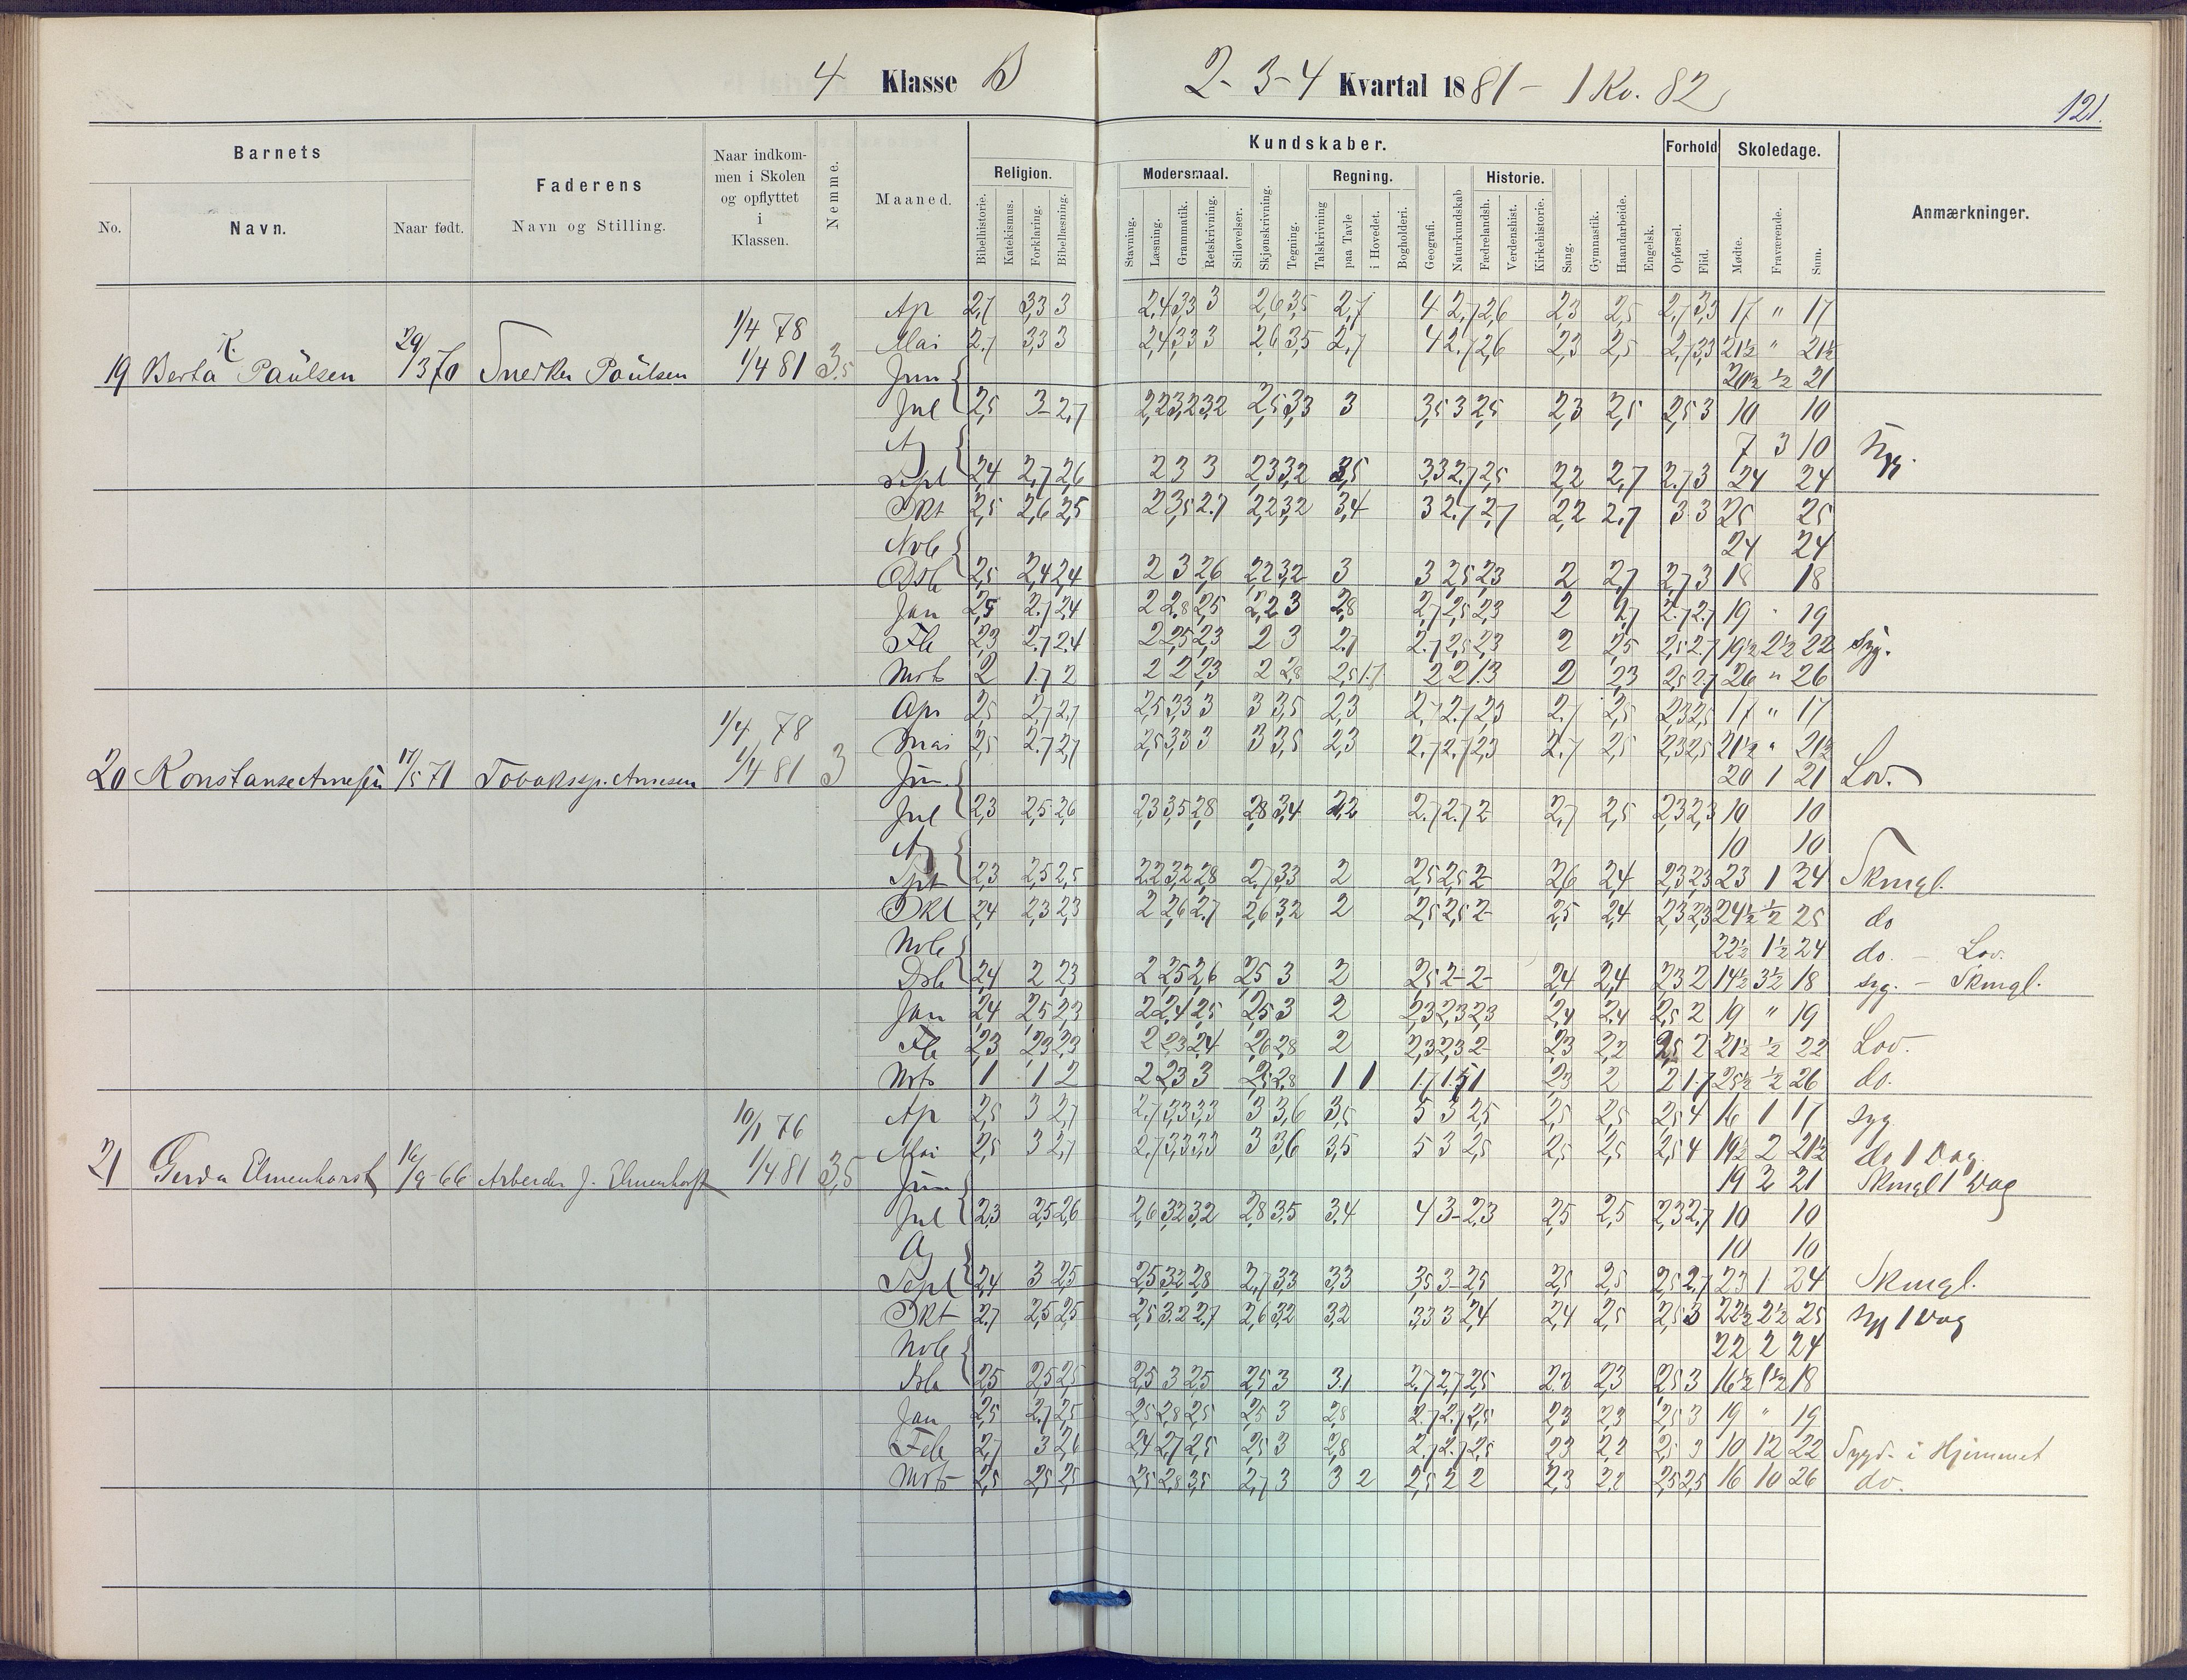 4 Klasse B 2-3-4 Kvartal 1881 - 1 Kv. 82
121.
Barnets
No.
Navn.
Naar født.
Faderens
Navn og Stilling.
Naar indkom-
men i Skolen
og opflyttet
i
Klassen.
Nemme.
Maaned.
Kundskaber.
Religion.
Bibelhistorie.
Katekismus.
Forklaring.
Bibellæsning.
Modersmaal.
Stavning.
Læsning.
Grammatik.
Retskrivning.
Stiløvelser.
Skjønskrivning.
Tegning.
Regning.
Talskrivning
paa Tavle
i Hovedet.
Bogholderi.
Geografi.
Naturkundskab
Historie.
Fædrelandsh.
Verdenshist.
Kirkehistorie.
Sang.
Gymnastik.
Haandarbeide.
Engelsk.
Forhold
Opførsel.
Flid.
Skoledage.
Mødte.
Fraværende.
Sum.
Anmærkninger.
Ap 2,7 3,3 3 2,4 3,3 3 2,6 3,5 2,7 4 2,7 2,6 2,3 2,5 2,7 3,3 17 " 17
1/4 78
Mai 2,7 3,3 3 2,4 3,3 3 2,6 3,5 2,7 4 2,7 2,6 2,3 2,5 2,7 3,3 21½ " 21½
19 Berta K. Paulsen 29/3 70 Snedker Poulsen 1/4 81 3,5 Jun 20½ ½ 21
Jul 2,5 3- 2,7 2,2 3,2 3,2 2,5 3,3 3 3,5 3 2,5 2,3 2,5 2,5 3 10 10
Ag 7 3 10 syg.
Sept 2,4 2,7 2,6 2 3 3 2,3 3,2 3,5 3,3 2,7 2,5 2,2 2,7 2,7 3 24 24
Okt 2,5 2,6 2,5 2 3,5 2,7 2,2 3,2 3,4 3 2,7 2,7 2,2 2,7 3 3 25 25
Nvb 24 24
Dsb 2,5 2,4 2,4 2 3 2,6 2,2 3,2 3 3 2,5 2,3 2 2,7 2,7 3 18 18
Jan 2,5 2,7 2,4 2 2,8 2,5 2,2 3 2,8 2,7 2,5 2,3 2 2,7 2,7 2,7 19 " 19
Fb 2,3 2,7 2,4 2 2,5 2,3 2 3 2,7 2,7 2,5 2,3 2 2,5 2,5 2,7 19½ 2½ 22 syg.
Mrts 2 1,7 2 2 2 2,3 2 2,8 2,5 1,7 2 2 1,3 2 2,3 2,5 2,7 26 " 26
Apr 2,5 2,7 2,7 2,5 3,3 3 3 3,5 2,3 2,7 2,7 2,3 2,7 2,5 2,3 2,5 17 " 17
1/4 78
Mai 2,5 2,7 2,7 2,5 3,3 3 3 3,5 2,3 2,7 2,7 2,3 2,7 2,5 2,3 2,5 21½ " 21½
20 Konstanse Arnesen 17/5 71 Tobakssp. Arnesen 1/4 81 3 Jun. 20 1 21 Lov.
Jul 2,3 2,5 2,6 2,3 3,5 2,8 2,8 3,4 2,2 2,7 2,7 2 2,7 2,5 2,3 2,3 10 10
Ag 10 10
Spt 2,3 2,5 2,5 2,2 3,2 2,8 2,7 3,3 2 2,5 2,5 2 2,6 2,4 2,3 2,3 23 1 24 Skmgl.
Okt 2,4 2,3 2,3 2 2,6 2,7 2,6 3,2 2 2,5 2,5 2 2,5 2,4 2,3 2,3 24½ ½ 25 do
Nvb 22½ 1½ 24 do. - Lov.
Dsb 2,4 2 2,3 2 2,5 2,6 2,5 3 2 2,5 2- 2- 2,4 2,4 2,3 2 14½ 3½ 18 syg. - Skmgl.
Jan 2,4 2,5 2,3 2 2,4 2,5 2,5 3 2 2,3 2,3 2,3 2,4 2,4 2,5 2 19 " 19
Fb 2,3 2,3 2,3 2 2,3 2,4 2,6 2,8 2 2,3 2,3 2 2,3 2,2 2,5 2 21½ ½ 22 Lov.
Mrts 1 1 2 2 2,3 3 2,5 2,8 1 1 1,7 1,5 1 2,3 2 2 1,7 25½ ½ 26 do.
Ap 2,5 3 2,7 2,7 3,3 3,3 3 3,6 3,5 5 3 2,5 2,5 2,5 2,5 4 16 1 17 syg
10/1 76
Mai 2,5 3 2,7 2,7 3,3 3,3 3 3,6 3,5 5 3 2,5 2,5 2,5 2,5 4 19½ 2 21½ do 1 Dag.
21 Gerda Elmenhorst 16/9-66 Arbeider J. Elmenhorst 1/4 81 3,5 Jun 19 2 21 Skmgl 1 Dag
Jul 2,3 2,5 2,6 2,6 3,2 3,2 2,8 3,5 3,4 4 3- 2,3 2,5 2,5 2,3 2,7 10 10
Ag 10 10
Sept 2,4 3 2,5 2,5 3,2 2,8 2,7 3,3 3,3 3,5 3- 2,5 2,5 2,5 2,5 2,7 23 1 24 Skmgl.
Okt 2,7 2,5 2,5 2,5 3,2 2,7 2,6 3,2 3,2 3,3 3 2,4 2,4 2,5 2,5 3 22½ 2½ 25 syg 1 Dag
Nvb 22 2 24
Dsb 2,5 2,5 2,5 2,5 3 2,5 2,5 3 3,1 2,7 2,7 2,5 2,3 2,3 2,5 3 16½ 1½ 18
Jan 2,5 2,7 2,5 2,5 2,8 2,5 2,5 3 2,8 2,7 2,7 2,5 2,3 2,3 2,5 3 19 " 19
Feb 2,7 3 2,6 2,4 2,7 2,5 2,5 3 2,8 2,7 2,7 2,5 2,3 2,2 2,5 3 10 12 22 Sygd. i Hjemmet
Mrts 2,5 2,5 2,5 2,5 2,8 3,5 2,7 3 3 2 2,5 2 2 2,3 2,2 2,5 2,5 16 10 26 do.